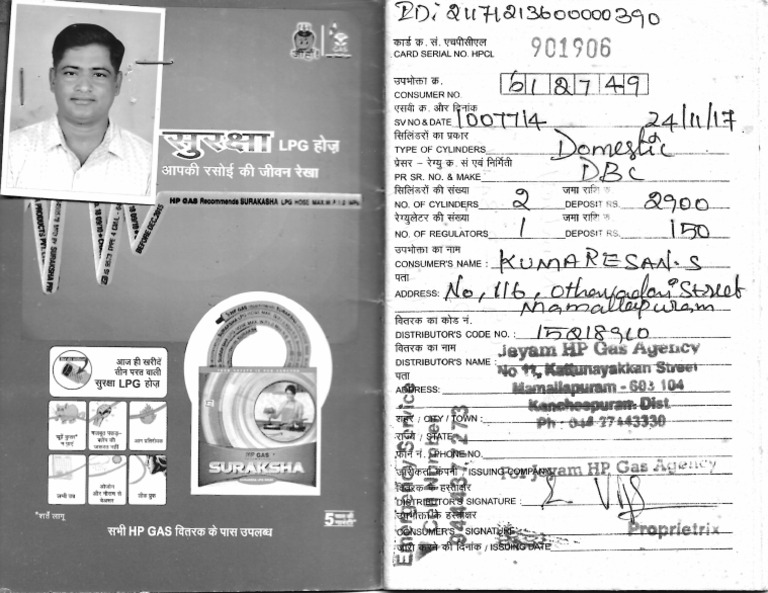 सुरक्षा LPG होज़
आपकी रसोई की जीवन रेखा
HP GAS Recommends SURAKSHA LPG HOSE
BEFORE DEC.2015
आज ही खरीदें
तीन परत वाली
सुरक्षा LPG होज़
HP GAS
SURAKSHA
*शर्तें लागू
सभी HP GAS वितरक के पास उपलब्ध
कार्ड क्र. सं. एचपीसीएल
CARD SERIAL NO. HPCL 901906
उपभोक्ता क्र.
CONSUMER NO. 612749
एसवी क्र. और दिनांक
SV NO & DATE 1007714 24/11/17
सिलिंडरों का प्रकार
TYPE OF CYLINDERS Domestic
प्रेसर - रेग्यु क्र. सं एवं निर्मिती
PR SR. NO. & MAKE DBC
सिलिंडरों की संख्या जमा राशि
NO. OF CYLINDERS 2 DEPOSIT RS. 2900
रेग्युलेटर की संख्या जमा राशि
NO. OF REGULATORS 1 DEPOSIT RS. 150
उपभोक्ता का नाम
CONSUMER'S NAME : KUMARESAN.S
पता
ADDRESS: No, 116, Street
Mamallapuram
वितरक का कोड नं.
DISTRIBUTOR'S CODE NO. : 15218910
वितरक का नाम Jayam HP Gas Agency
DISTRIBUTOR'S NAME : No 11, Kattunayakkan Street
पता
ADDRESS: Mamallapuram - 603 104
Kancheepuram Dist
शहर / CITY / TOWN : Ph : 044-27443330
राज्य / STATE
फोन नं. / PHONE NO.
जारीकर्ता कंपनी / ISSUING COMPANY For Jayam HP Gas Agency
वितरक के हस्ताक्षर
DISTRIBUTOR'S SIGNATURE :
उपभोक्ता के हस्ताक्षर
CONSUMER'S SIGNATURE : Proprietrix
जारी करने की दिनांक / ISSUING DATE
Emergency Service